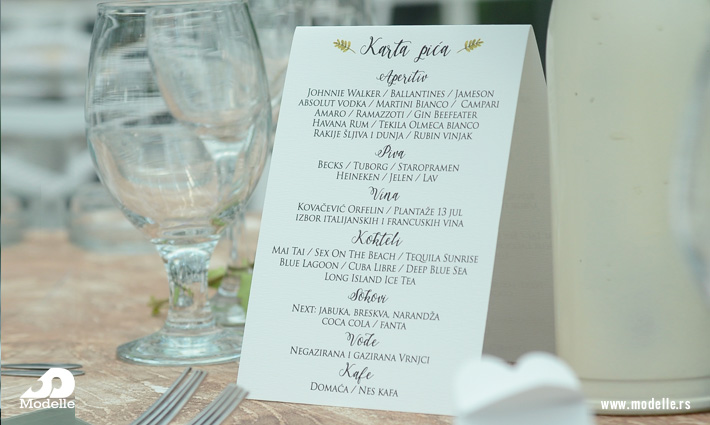 Karta pića
Aperitiv
Johnnie Walker / Ballantines / Jameson
Absolut vodka / Martini Bianco / Campari
Amaro / Ramazzoti / Gin Beefeater
Havana Rum / Tekila Olmeca bianco
Rakije šljiva i dunja / Rubin vinjak
Piva
Becks / Tuborg / Staropramen
Heineken / Jelen / Lav
Vina
Kovačević Orfelin / Plantaže 13 jul
izbor italijanskih i francuskih vina
Kokteli
Mai Tai / Sex On The Beach / Tequila Sunrise
Blue Lagoon / Cuba Libre / Deep Blue Sea
Long Island Ice Tea
Sokovi
Next: jabuka, breskva, narandža
coca cola / fanta
Vode
Negazirana i gazirana Vrnjci
Kafe
Domaća / Nes kafa
Modelle
www.modelle.rs